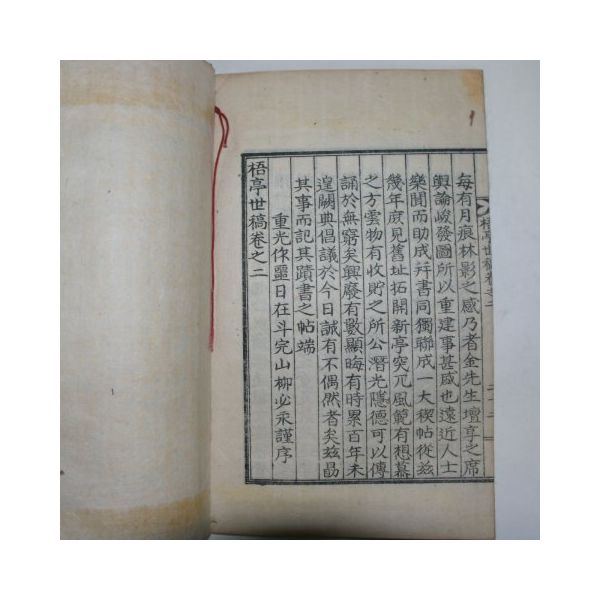 每有月痕林影之感乃者金先生壇享之席
輿論峻發圖所以重建事甚盛也遠近人士
樂聞而助成幷書同獨聯成一大稧帖從玆
幾年庶見舊址拓開新亭突兀風範有想慕
之方雲物有收貯之所公潛光隱德可以傳
誦於無窮矣興廢有數顯晦有時累百年未
遑闕典倡議於今日誠有不偶然者矣玆勗
其事而記其蹟書之帖端
重光作噩日在斗完山柳必永謹序
梧亭世稿卷之二
梧亭世稿卷之二